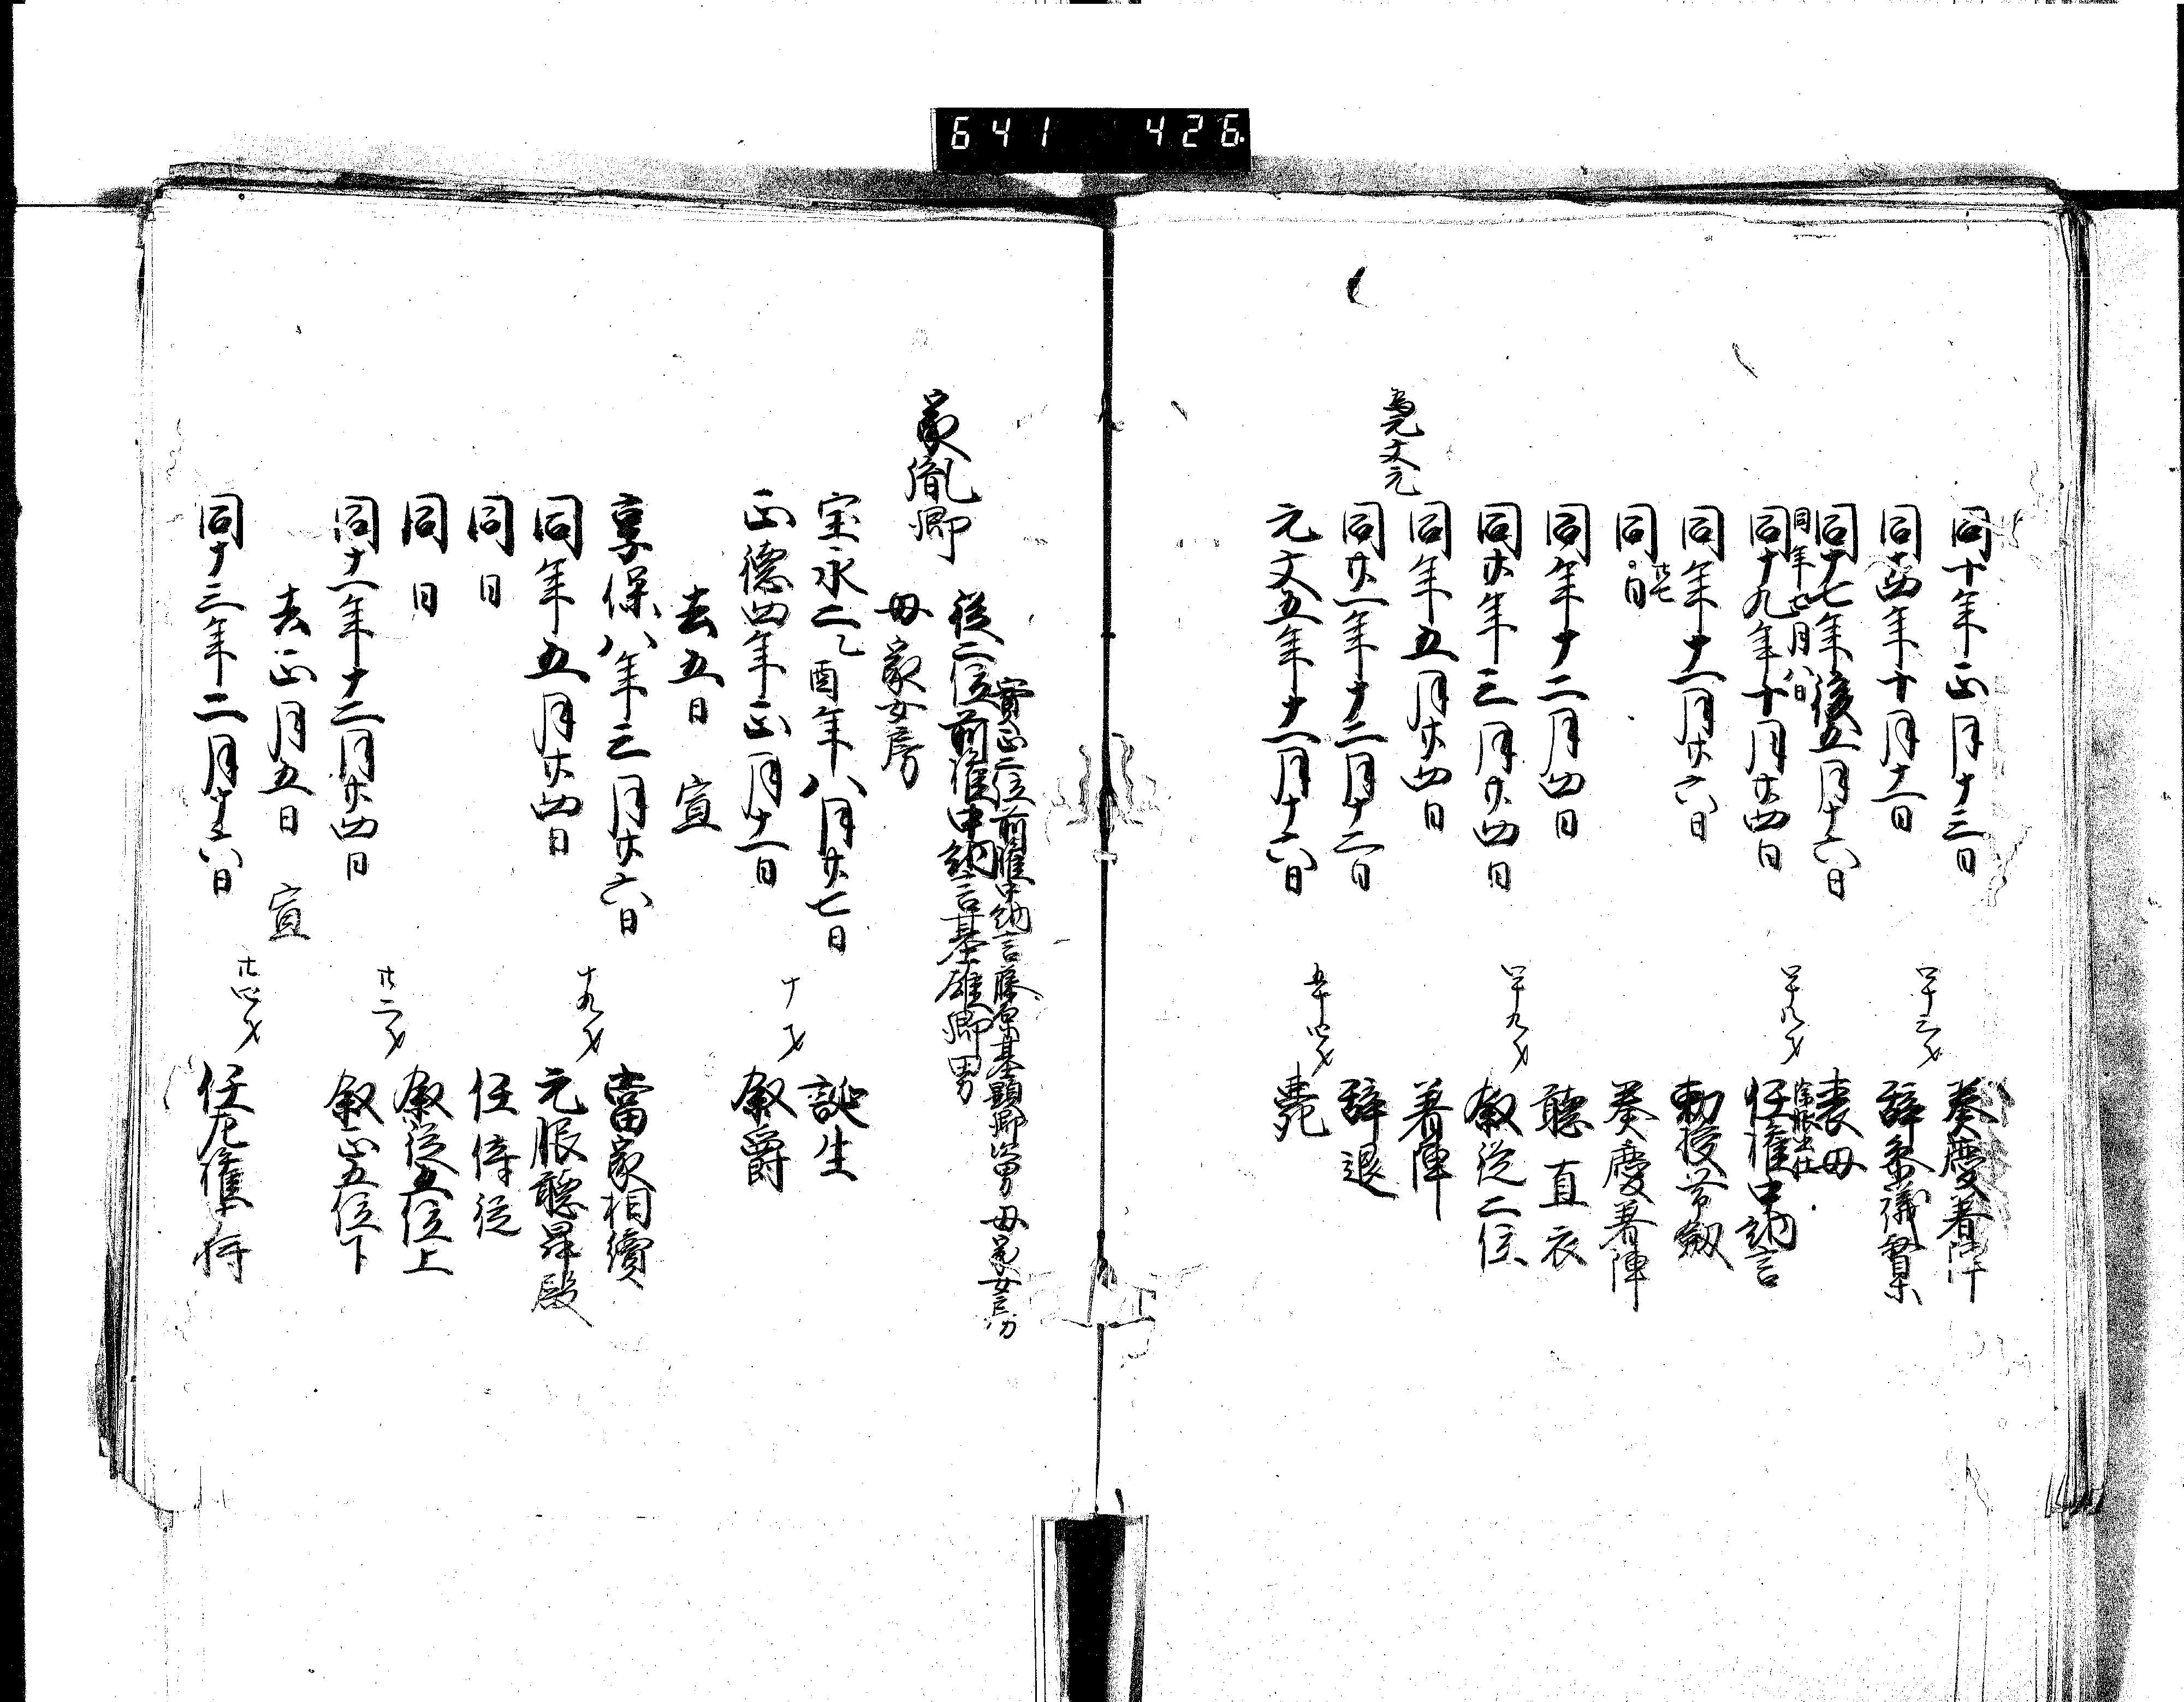 641 426
同十年正月十三日 奏慶着陣
同十四年十月十一日 四十三才 辞参議賀茂
同十七年後五月十六日 喪母
同年七月八日 除服出仕
同十九年十月廿四日 四十八才 任権中納言
同年十一月廿六日 勅授帯剱
同廿七日 奏慶着陣
同年十二月四日 聴直衣
同廿年三月廿四日 四十九才 叙従二位
同年五月廿四日 着陣
為元文元
同廿一年十二月十二日 辞退
元文五年十一月十六日 五十四才 薨
家胤卿
實正二位前権中納言藤原基顕卿次男 母家女房
従二位前権中納言基雄卿男
母家女房
宝永二乙酉年八月廿七日 誕生
正徳四年正月十一日 十才 叙爵
去五日 宣
享保八年三月廿六日 當家相續
同年五月廿四日 十九才 元服聴昇殿
同日 任侍従
同日 叙従五位上
同十一年十二月廿四日 廿二才 叙正五位下
去正月五日 宣
同十三年二月十六日 廿四才 任左権少将